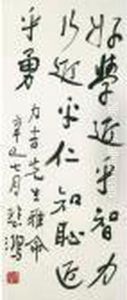 好學近乎智力
行近乎仁知恥近
乎勇
先生雅命
七月悲鴻